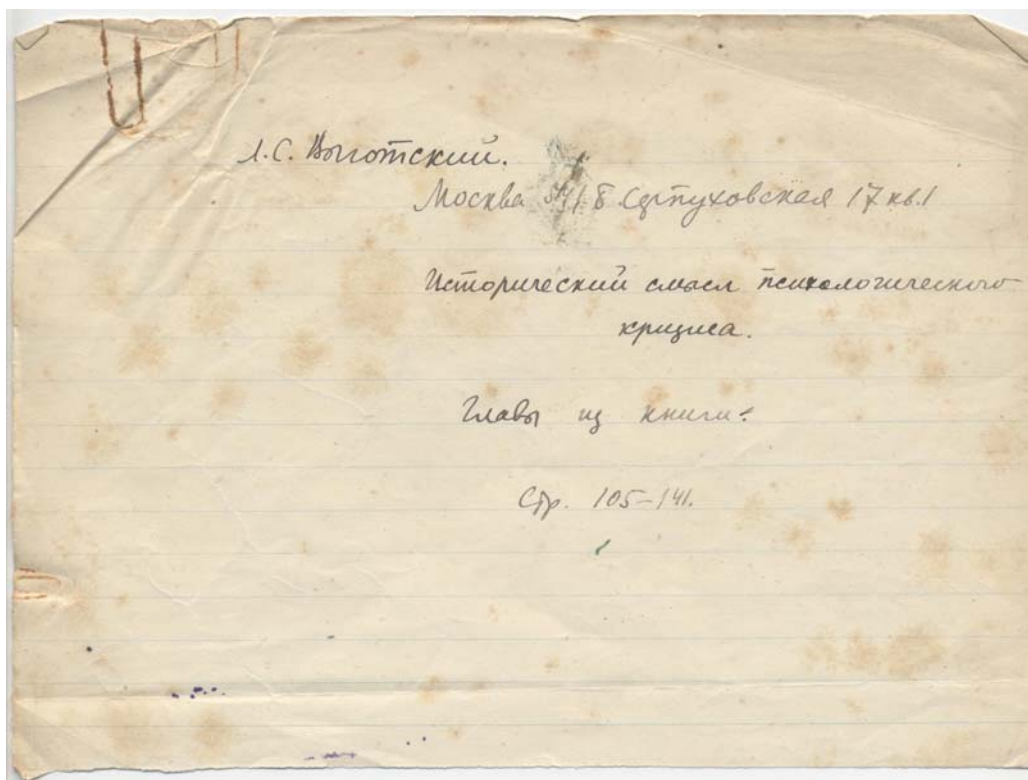 Л.С. Выготский.
Москва Б. Серпуховская 17 кв. 1
Исторический смысл психологического
кризиса.
Главы из книги:
Стр. 105–141.